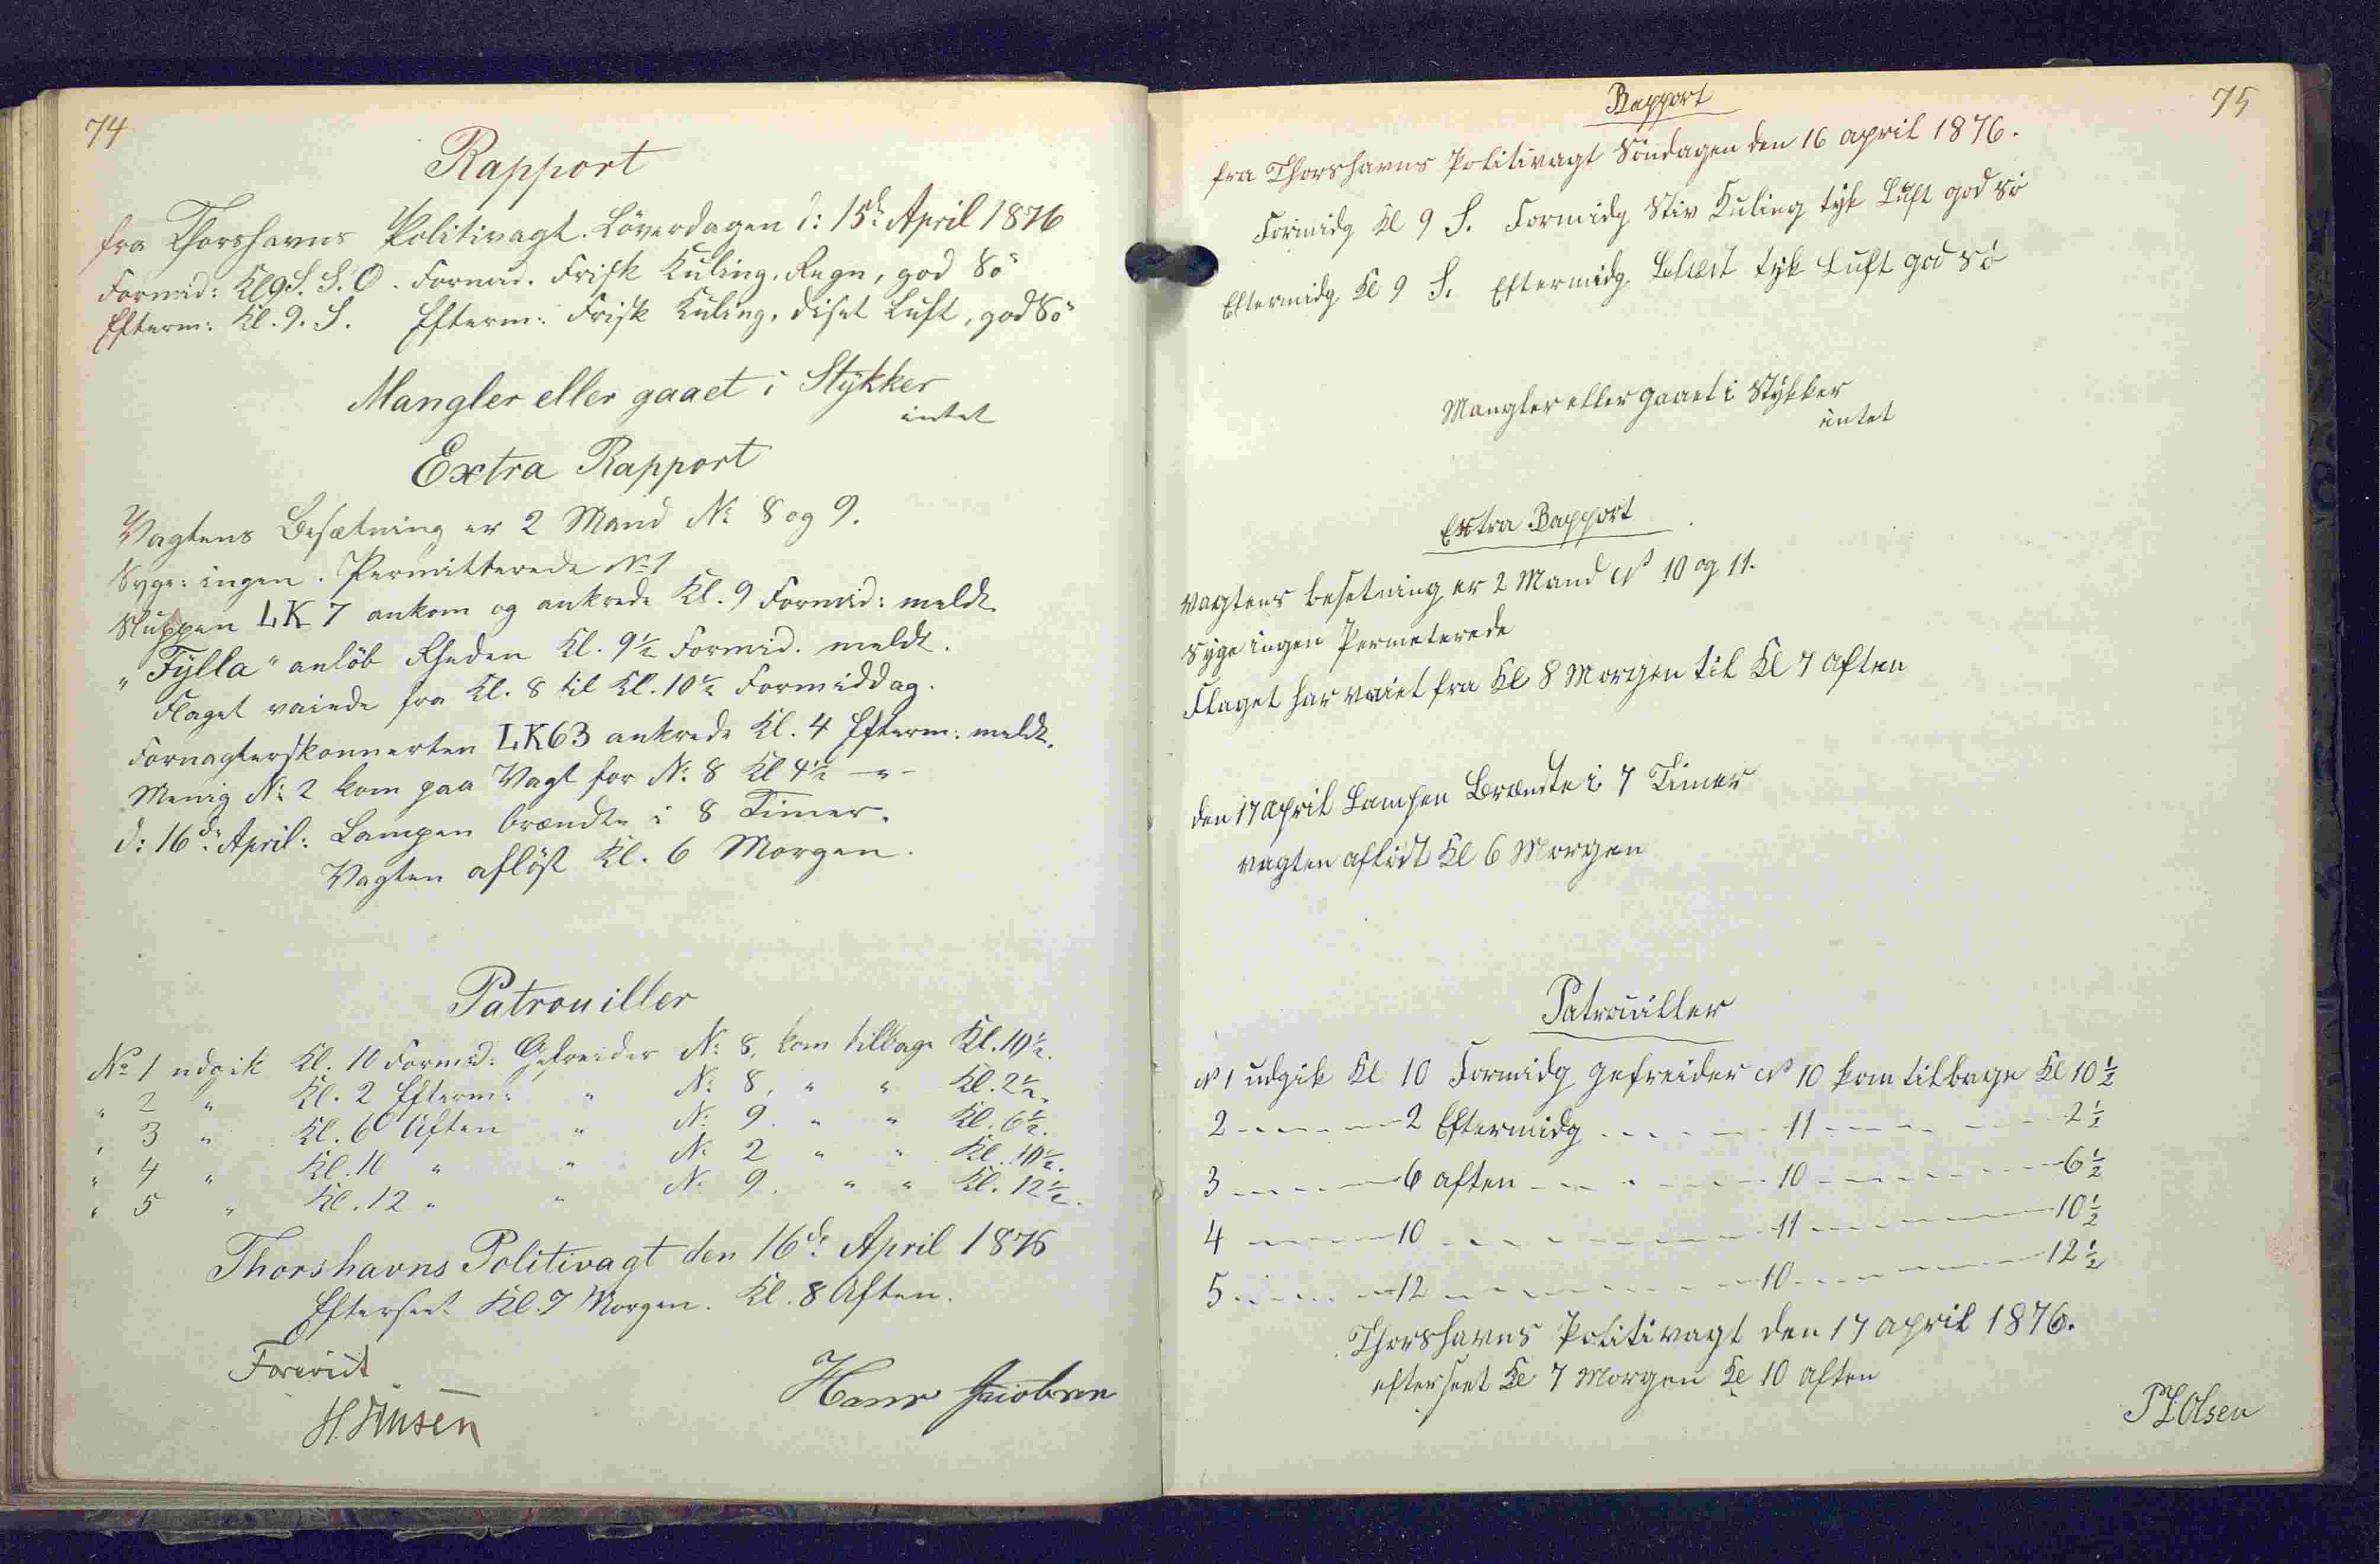 74
Rapport
fra Thorshavns Politivagt. Löverdagen d: 15d: April 1876
Formid: Kl 9 S. S. O. Formid. Frisk Kuling, Regn, god Sö
Efterm: Kl. 9. S. Efterm: Frisk Kuling, diset Luft, god Sö
Mangler eller gaaet i Stykker
intet
Extra Rapport
Vagtens Besætning er 2 Mand No 8 og 9.
Syge: ingen. Permitterede No 1
Sluppen LK 7 ankom og ankrede Kl. 9 Formid: meldt.
"Fylla" anlöb Rheden Kl. 9½ Formid. meldt.
Flaget vaiede fra Kl. 8 til Kl. 10½ Formiddag.
LK63 ankrede Kl. 4 Efterm: meldt.
Menig No 2 kom paa Vagt for No 8 Kl 4½ -"-
d: 16d: April: Lampen brændte i 8 Timer.
Vagten aflöst Kl. 6 Morgen.
Patrouiller
No 1 udgik Kl. 10 Formid: Gefreider No 8, kom tilbage Kl. 10½.
" 2 " Kl. 2 Efterm: " No 8, " " Kl. 2½.
" 3 " Kl. 6 Aften " No 9. " " Kl. 6½.
" 4 " Kl. 10 " " No 2 " " Kl. 10½.
" 5 " Kl. 12 " " No 9. " " Kl. 12½.
Thorshavns Politivagt den 16d: April 1876
Efterseet Kl. 7 Morgen. Kl. 8 Aften.
Forevist
Hans Jacobsen
75
Rapport
fra Thorshavns Politivagt Söndagen den 16 april 1876.
Formidg Kl 9 S. Formidg Stiv Kuling tyk Luft god Sö
Eftermidg Kl 9 S. Eftermidg tyk Luft god Sö
Mangler eller gaaet i Stykker
intet
Extra Rapport
Vagtens besetning er 2 Mand No 10 og 11.
Syge ingen Permeterede
Flaget har vaiet fra Kl 8 Morgen til Kl 7 aften
den 17 april Lampen Brændte i 7 Timer
vagten aflöst Kl 6 Morgen
Patrouiller
No 1 udgik Kl 10 Formidg gefreider No 10 kom tilbage Kl 10½
2 ---- 2 Eftermidg ---- 11 ---- 2½
3 ---- 6 aften ---- 10 ---- 6½
4 ---- 10 ---- 11 ---- 10½
5 ---- 12 ---- 10 ---- 12½
Thorshavns Politivagt den 17 april 1876.
efterseet Kl 7 Morgen Kl 10 aften
P L Olsen